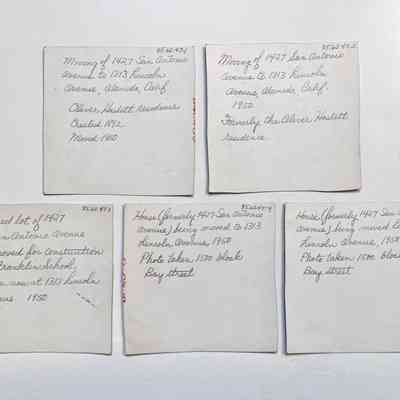 Moving of 1427 San Antonio
Avenue to 1313 Lincoln
Avenue, Alameda, Calif.
Oliver Haslett residence
Created 1892
Moved 1950
Moving of 1427 San Antonio
Avenue to 1313 Lincoln
Avenue, Alameda, Calif.
1950
Formerly the Oliver Haslett
residence
lot of 1427
Antonio Avenue
moved for construction
Franklin School,
now at 1313 Lincoln
1950
House (formerly 1427 San Antonio
Avenue) being moved to 1313
Lincoln Avenue, 1950
Photo taken 1500 block
Bay Street
House (formerly 1427 San
Avenue) being moved
Lincoln Avenue, 1950
Photo taken 1500 block
Bay Street